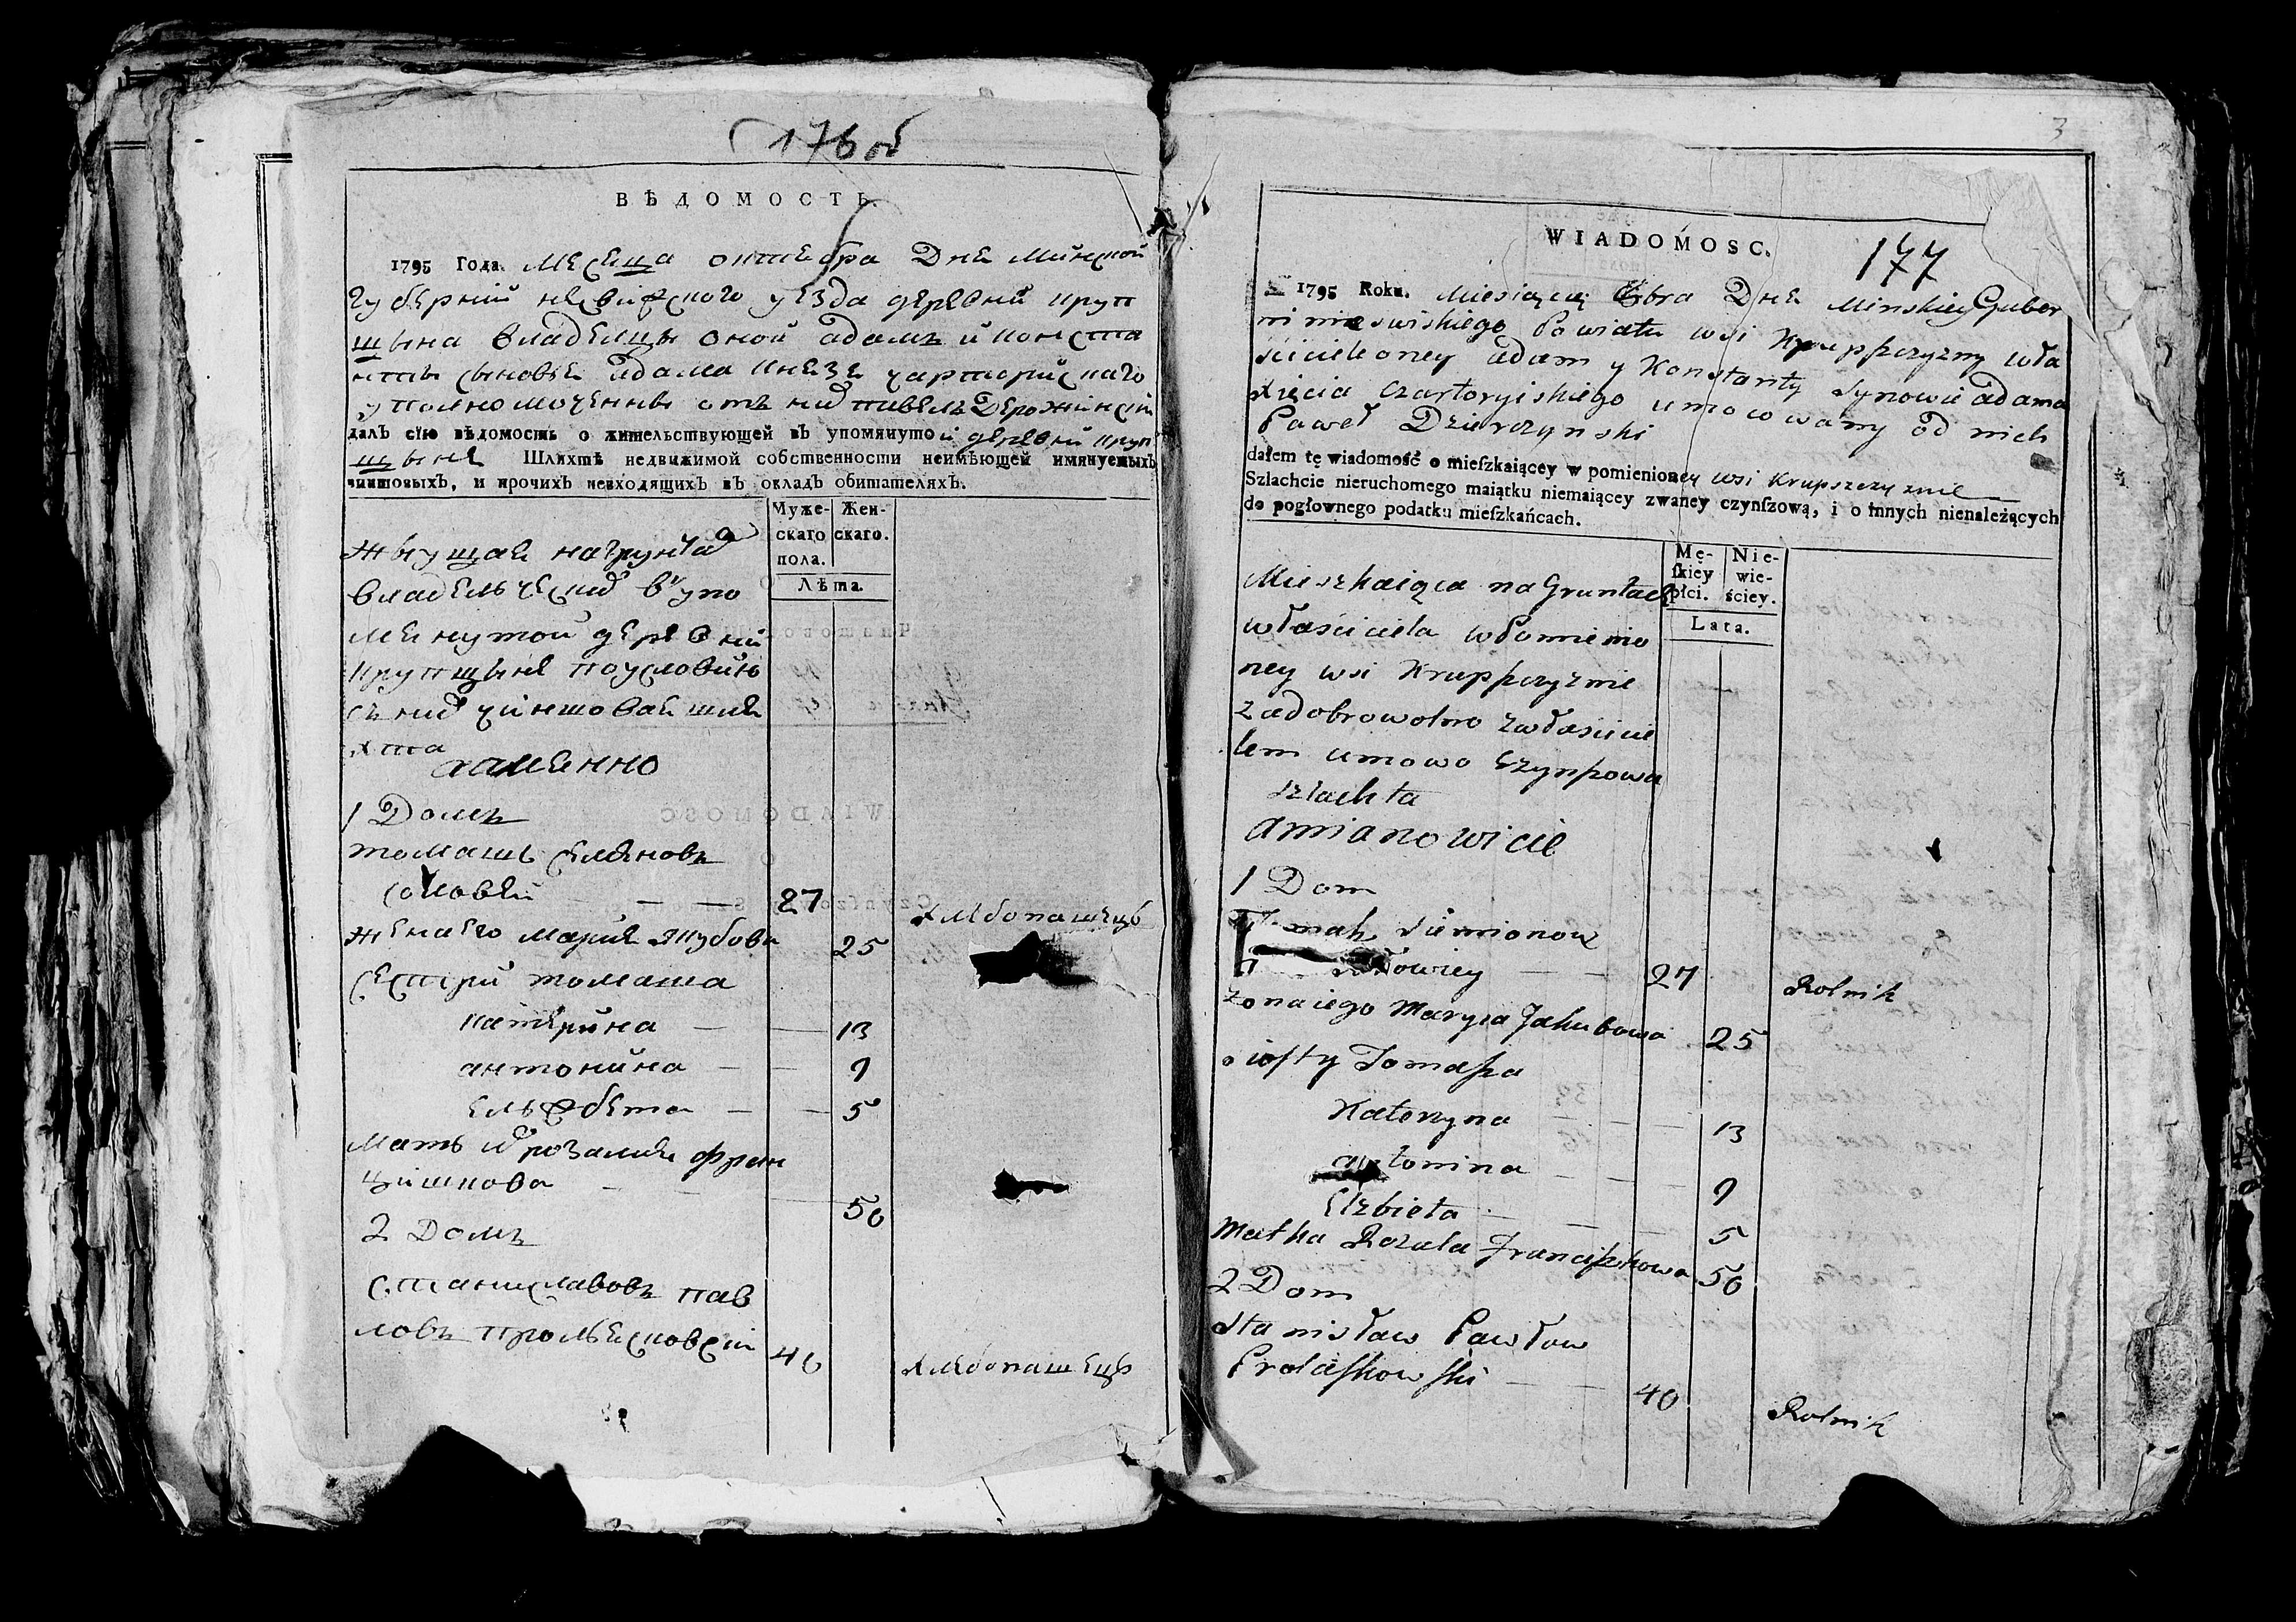 176 об
ВѢДОМОСТЬ.
1795 Года. Месеца октебра Дне Минской
Губерній несвижского уезда деревни круп
щына владелцы оной адамъ и конста
нты сыновъе адама кнезе чарторийского
уполномоченны отъ них павелъ Держинскій
далъ сїю вѣдомость о жительствующей въ упомянутой деревни круп
щыне Шляхтѣ недвижимой собственности неимѣющей имянуемыхъ
чиншовыхъ, и прочихъ невходящихъ въ окладъ обитателяхъ.
Муже-
скаго
пола.
Жен-
скаго.
Лѣта.
жывущая на грунтах
владельческих в упо
менутой деревни
крупщыне по условию
съ них чиншовая шля
хта
а именно
1 Домъ
томашъ семеновъ
соловей — — 27 хлебопашецъ
жена его мария якубова 25
сестри томаша
катерина — — 13
антонина — — 9
ельжбета — — 5
мать их розалия фран
цишкова — — 50
2 Домъ
станиславовъ пав
ловъ 40 хлебопашецъ
3
WIADOMOSC.
177
1795 Roku. Miesiąca 8bra Dne Minskiey Guber
ni nieswiskiego Powiatu wsi Krupszczyzny wła
ściciele oney adam y Konstanty synowie adama
xięcia Czartoryiskiego umocowany od nich
Paweł Dzierzynski
dałem tę wiadomość o mieſzkaiącey w pomienioney wsi Krupszczyznie
Szlachcie nieruchomego maiątku niemaiącey zwaney czynſzową, i o innych nienależących
do pogłownego podatku mieſzkańcach.
Mę-
ſkiey
płci.
Nie-
wie-
ściey.
Lata.
Mieszkaiąca na Gruntach
właściciela w Pomienio
ney wsi Krupszczyznie
za dobrowolno z właścicie
lem umowo Czynszowa
szlachta
amianowicie
1 Dom
Tomasz Siemionow
Sołowiey — — 27 Rolnik
żona iego Marya Jakubowa 25
siostry Tomasza
Katerzyna — — 13
antonina — — 9
Elzbieta — — 5
Matka Rozala Franciszkowa 50
2 Dom
Stanisław Pawłow
— — 40 Rolnik